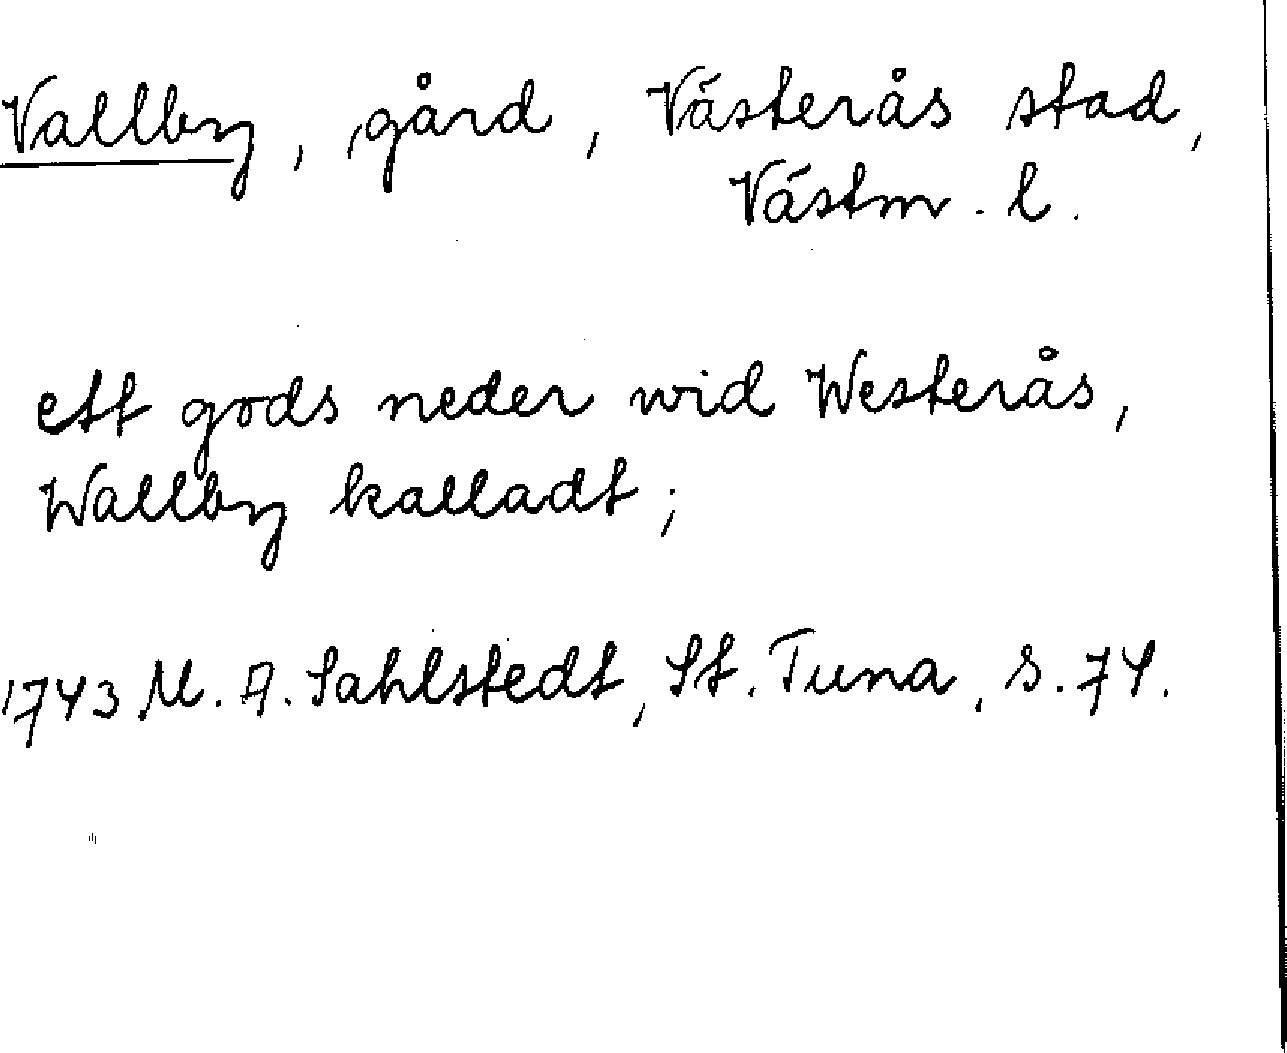 Vallby, gård, Västerås stad,
Västm. l.
ett gods neder wid Westerås,
Wallby kalladt;
1743 M. A. Sahlstedt, St. Tuna, s. 74.